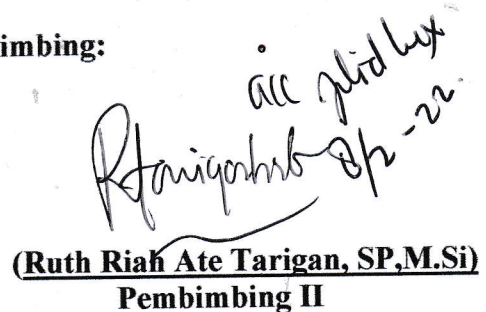 imbing:
acc jilid lux
8/2-22.
(Ruth Riah Ate Tarigan, SP,M.Si)
Pembimbing II